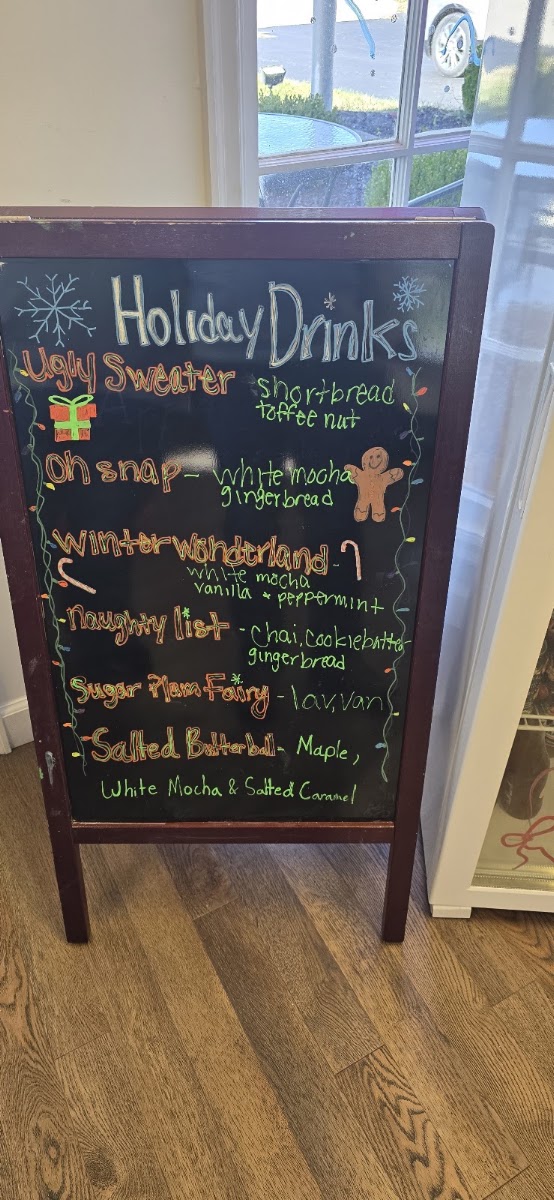 Holiday Drinks
Ugly Sweater shortbread
toffee nut
Oh snap - white mocha
gingerbread
winter wonderland -
white mocha
vanilla + peppermint
naughty list - Chai, cookiebutter
gingerbread
Sugar Plum Fairy - lav, van
Salted Butterball - Maple,
White Mocha & Salted Caramel